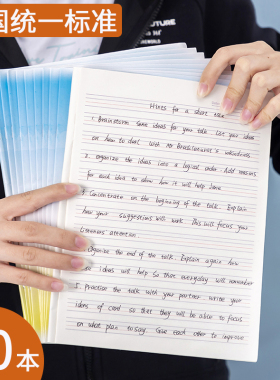 国统一标准
FUTURE
Hints for a short talk
1. Brainstorm some ideas for you talk. List your ideas
on how to deal with Mr Brackiturist's unkindness.
2. organize the ideas into a logical order. Add reasons
for each idea to show how it will help Jane.
3. Concentrate on the beginning of the talk. Explain
how your suggestions will work. This will focus your
listeners attention.
Organize the end of the talk. Explain again how
ideas will help so that everyday will remember
5. Practise the talk with you partner. Write your
ideas of card so that they will be able to focus
on what plan to say. Give each other to improve
0本